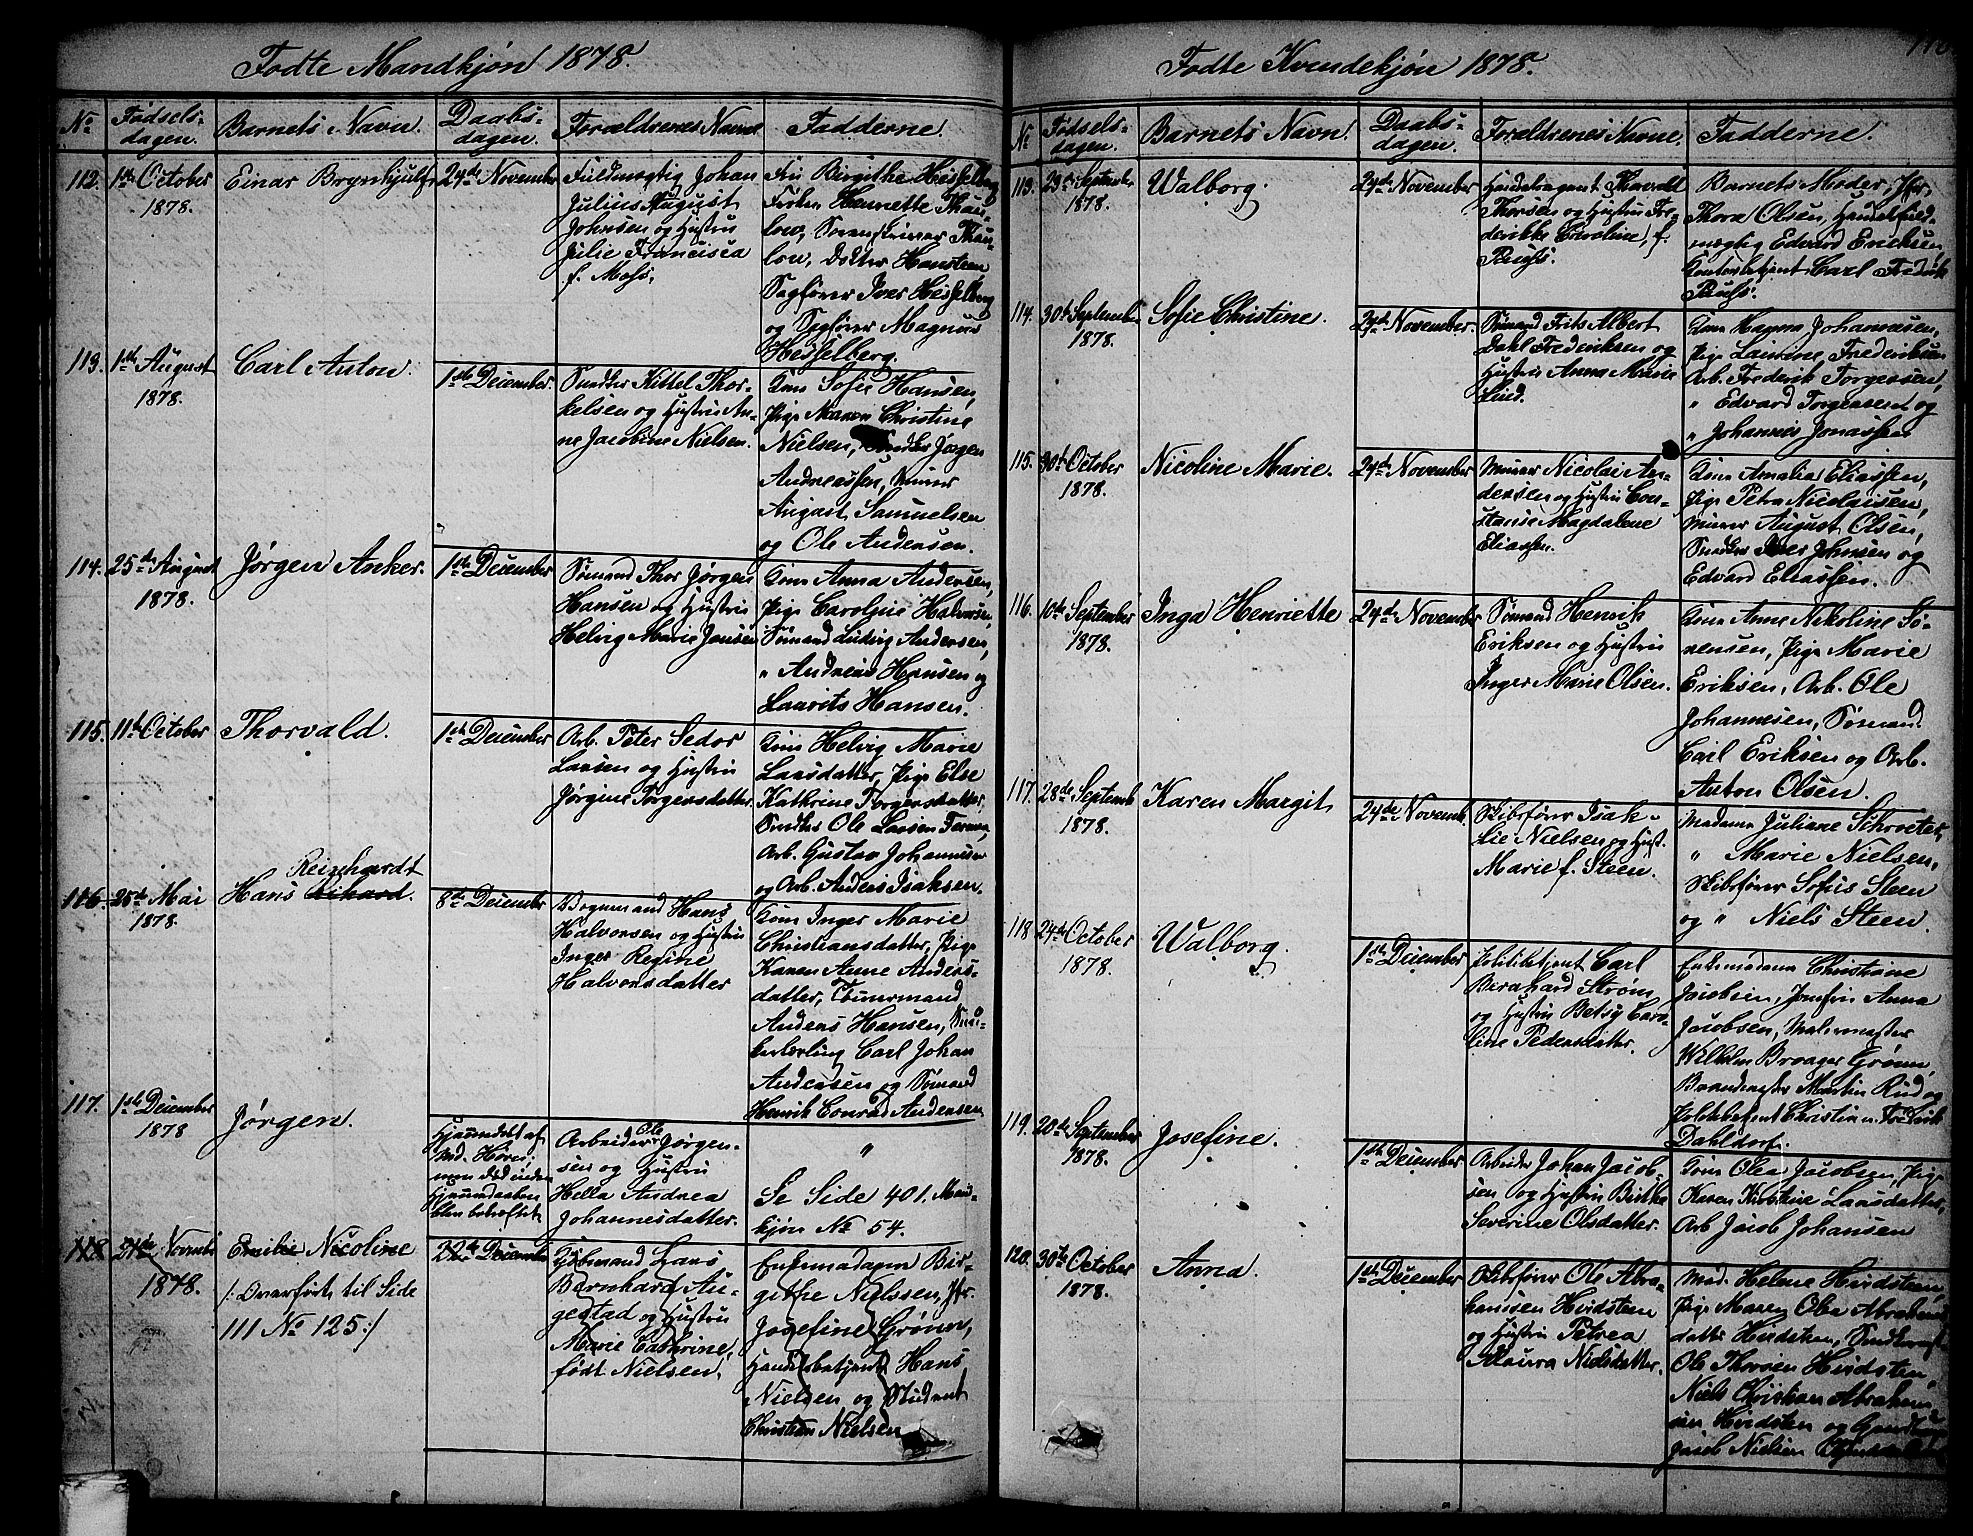 Fødte Mandkjøn 1878.
No
Fødsels-
dagen.
Barnets Navn.
Daabs-
dagen.
Forældrenes Navne
Fadderne.
112.
1ste October
1878.
Einar Brynhjulf
24de November
Fuldmægtig Johan
Julius August
Johnsen og Hustru
Julie Francisca
f. Moss.
Fru Birgithe Hesselberg
Frøken Henriette Thau-
low, Sorenskriver Thau-
low, Doktor Hansteen,
Sagfører Iver Hesselberg
og Sagfører Magnus
Hesselberg.
113.
1ste August
1878.
Carl Anton.
1ste December.
Snedker Kittel Thor-
kelsen og Hustru An-
ne Jacobine Nielsen.
Kone Sofie Hansen,
Pige Maren Christine
Nielsen, Snedker Jørgen
Andreassen, Murer
August Samuelsen
og Ole Andersen.
114.
25de August
1878.
Jørgen Anker.
1ste December
Sømand Thor Jørgen
Hansen og Hustru
Helvig Marie Jansen
Kone Anna Andersen,
Pige Caroline Halvorsen,
Sømand Ludvig Andersen,
" Andreas Hansen og
Laurits Hansen.
115.
11te October
Thorvald.
1ste December
Arb. Peter Sedor
Larsen og Hustru
Jørgine Torgersdatter.
Kone Helvig Marie
Larsdatter, Pige Else
Kathrine Torgersdatter,
Snedker Ole Larsen
Arb. Gustav Johannesen
og Arb. Anders Isaksen.
116.
25de Mai
1878.
Reinhardt
Hans Rikard.
8de December
Vognmand Hans
Halvorsen og Hustru
Inger Regine
Halvorsdatter
Kone Inger Marie
Christiansdatter, Pige
Karen Anne Anders-
datter, Tømermand
Anders Hansen, Sned-
kerlærling Carl Johan
Andersen og Sømand
Henrik Conrad Andersen
117.
1ste December
1878
Jørgen.
Hjemmedøbt af
Md.
død inden
bekræftet.
Arbeider Ole Jørgen-
sen og Hustru
Hella Andrea
Johannesdatter.
"
Se Side 401. Man-
kjøn No 54.
118.
21de Novemb.
1878.
Emilie Nicoline
/: Overført til Side
111 No 125:/
22de December
Lars
Bernhard Au-
gestad og Hustru
Marie Cathrine,
født Nielsen.
Enkemadam Bir-
githe Nielssen, Jfr.
Josefine Grønn,
Handelsbetjent Hans
Nielsen og Student
Christian Nielsen
Fødte Kvindekjøn 1878.
No
Fødsels-
dagen.
Barnets Navn.
Daabs-
dagen.
Forældrenes Navne.
Fadderne.
113.
23de September
1878.
Walborg.
24de November
Handelsagent Thorvald
Thorsen og Hustru Fre-
derikke Caroline, f.
Paus.
Barnets Moder, Jfr.
Thora Olsen, Handelsfuld-
mægtig Edvard Ericksen,
Contorbetjent Carl Fredrik
Paus.
114.
30te September
1878.
Sofie Christine.
24de November.
Sømand Frits Albert
Dahl Frederiksen og
Hustru Anna Marie
Lind.
Kone Hanna Johannesen,
Pige Laurine Frederiksen
Arb. Frederik Torgersen,
" Edvard Torgersen og
" Johannes Jonassen
115.
30te October
1878.
Nicoline Marie.
24de November
Murer Nicolai An-
dersen og Hustru Con-
stanse Magdalene
Eliassen.
Kone Amalia Eliassen,
Pige Petra Nicolaisen,
Murer August Olsen,
Snedker Iver Johnsen og
Edvard Eliassen.
116.
10de September
1878.
Inga Henriette
24de November
Sømand Henrik
Eriksen og Hustru
Inger Marie Olsen.
Kone Anne Nikoline Sø-
rensen, Pige Marie
Eriksen, Arb. Ole
Johannesen, Sømand
Carl Eriksen og Arb.
Anton Olsen.
117.
28de Septemb.
1878.
Karen Margit
24de Novemb.
Skibsfører Isak
Lie Nielsen og Hust.
Marie f. Steen.
Madame Juliane Schrøeter,
" Marie Nielsen,
Skibsfører Sofus Steen
og " Niels Steen.
118
24de October
1878.
Walborg.
1ste December
Politibetjent Carl
Bernhard Strøm
og Hustru Betsy Caro-
line Pedersdatter.
Enkemadame Christiane
Jacobsen, Jomfru Anna
Jacobsen, Malermester
Wilhelm Broager Grønn,
Brandmester Martin Rud og
Politibetjent Christian Fredrik
Dahldorf.
119.
20de September
1878.
Josefine.
1ste December
Arbeider Johan Jacob-
sen og Hustru Birthe
Severine Olsdatter.
Kone Olea Jacobsen, Pige
Karen Kirstine Larsdatter,
Arb Jacob Johansen
120.
30te October
1878.
Anna.
1ste December
Skibsfører Ole Abra-
hamsen Hvidsteen
og Hustru Petrea
Maura Nielsdatter.
Mad. Helene Hvidsteen,
Pige Maren Olea Abrahams-
datter Hvidsten,
Ole Thorsen Hvidsten,
Niels Christian Abraham-
sen Hvidsten og
Jacob Nielsen